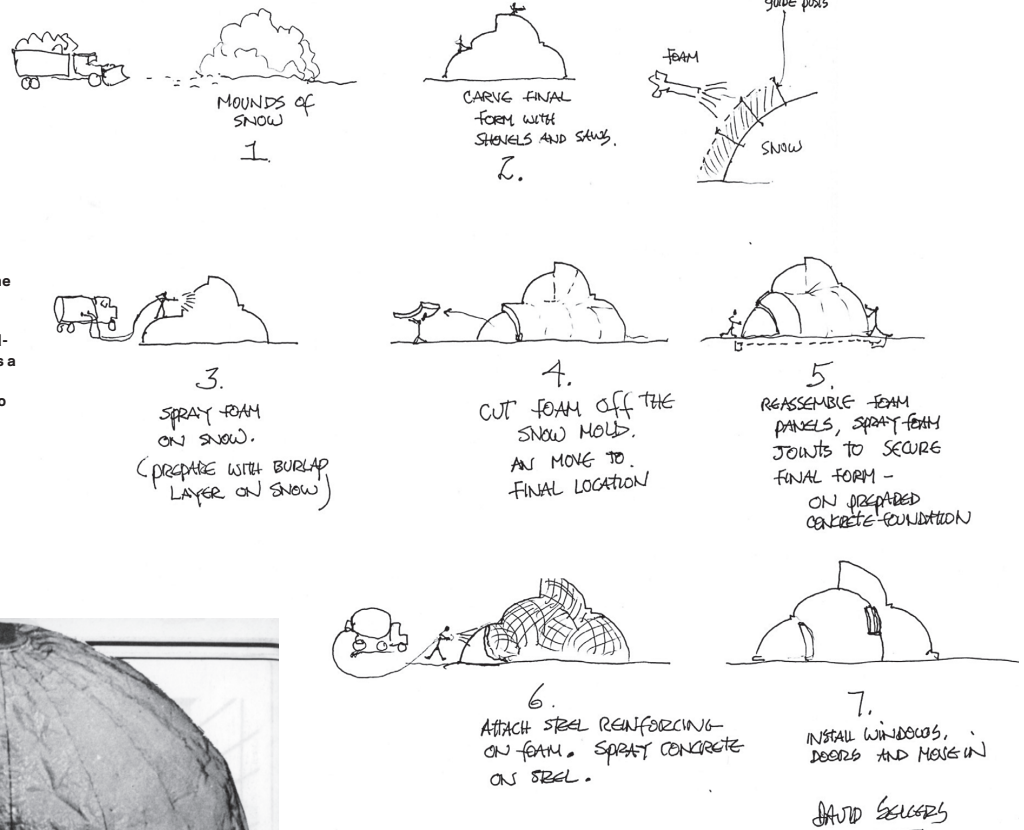 guide posts
FOAM
SNOW
MOUNDS OF
SNOW
1.
CARVE FINAL
FORM WITH
SHOVELS AND SAWS.
2.
3.
SPRAY FOAM
ON SNOW.
(PREPARE WITH BURLAP
LAYER ON SNOW)
4.
CUT FOAM OFF THE
SNOW MOLD.
AN MOVE TO.
FINAL LOCATION
5.
REASSEMBLE FOAM
PANELS, SPRAY FOAM
JOINTS TO SECURE
FINAL FORM –
ON PREPARED
CONCRETE FOUNDATION
6.
ATTACH STEEL REINFORCING
ON FOAM. SPRAY CONCRETE
ON STEEL.
7.
INSTALL WINDOWS,
DOORS AND MOVE IN
DAVID SELLERS